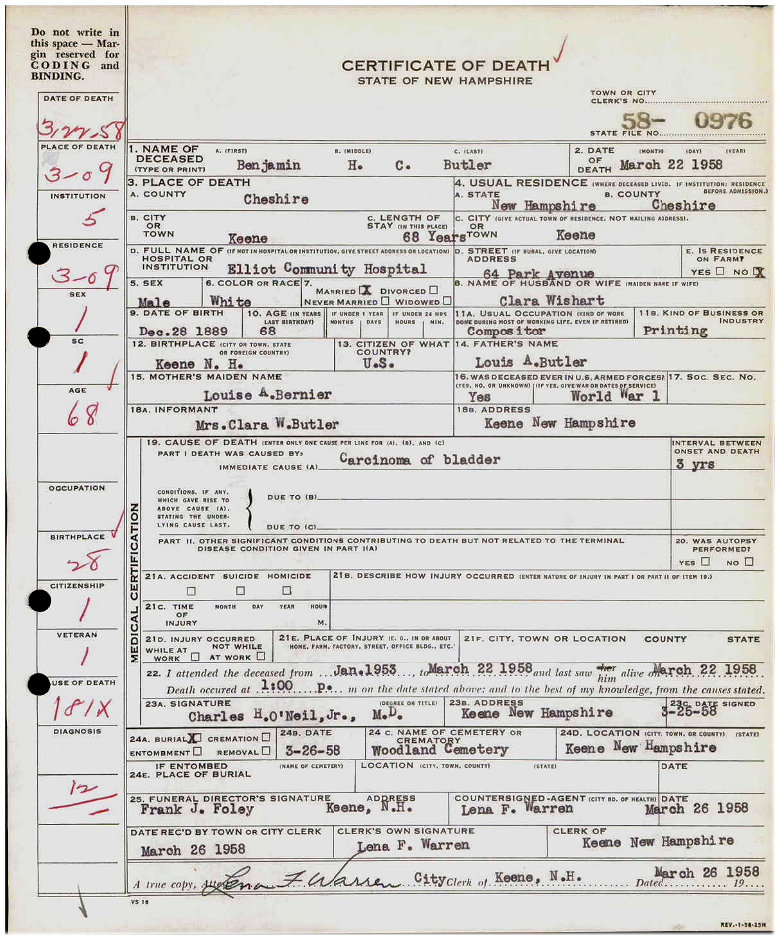 Do not write in
this space — Mar-
gin reserved for
CODING and
BINDING.
CERTIFICATE OF DEATH
STATE OF NEW HAMPSHIRE
TOWN OR CITY
CLERK'S NO.
58- 0976
STATE FILE NO.
DATE OF DEATH
3/22/58
PLACE OF DEATH
3-09
INSTITUTION
5
RESIDENCE
3-09
SEX
1
SC
1
AGE
68
OCCUPATION
BIRTHPLACE
28
CITIZENSHIP
1
VETERAN
1
USE OF DEATH
181X
DIAGNOSIS
12
1. NAME OF DECEASED (TYPE OR PRINT) A. (FIRST) B. (MIDDLE) C. (LAST)
Benjamin H. C. Butler
2. DATE OF DEATH (MONTH) (DAY) (YEAR)
March 22 1958
3. PLACE OF DEATH
A. COUNTY
Cheshire
4. USUAL RESIDENCE (WHERE DECEASED LIVED. IF INSTITUTION: RESIDENCE BEFORE ADMISSION.)
A. STATE B. COUNTY
New Hampshire Cheshire
B. CITY OR TOWN
Keene
C. LENGTH OF STAY (IN THIS PLACE)
68 Years
C. CITY (GIVE ACTUAL TOWN OF RESIDENCE, NOT MAILING ADDRESS).
OR TOWN
Keene
D. FULL NAME OF (IF NOT IN HOSPITAL OR INSTITUTION, GIVE STREET ADDRESS OR LOCATION)
HOSPITAL OR INSTITUTION
Elliot Community Hospital
D. STREET (IF RURAL, GIVE LOCATION)
ADDRESS
64 Park Avenue
E. IS RESIDENCE ON FARM?
YES ☐ NO ☒
5. SEX
Male
6. COLOR OR RACE
White
7. MARRIED ☒ DIVORCED ☐
NEVER MARRIED ☐ WIDOWED ☐
8. NAME OF HUSBAND OR WIFE (MAIDEN NAME IF WIFE)
Clara Wishart
9. DATE OF BIRTH
Dec.28 1889
10. AGE (IN YEARS LAST BIRTHDAY)
68
IF UNDER 1 YEAR
MONTHS DAYS
IF UNDER 24 HRS
HOURS MIN.
11A. USUAL OCCUPATION (KIND OF WORK DONE DURING MOST OF WORKING LIFE, EVEN IF RETIRED)
Compositor
11B. KIND OF BUSINESS OR INDUSTRY
Printing
12. BIRTHPLACE (CITY OR TOWN, STATE OR FOREIGN COUNTRY)
Keene N. H.
13. CITIZEN OF WHAT COUNTRY?
U.S.
14. FATHER'S NAME
Louis A.Butler
15. MOTHER'S MAIDEN NAME
Louise A.Bernier
16. WAS DECEASED EVER IN U.S. ARMED FORCES?
(YES, NO, OR UNKNOWN) (IF YES, GIVE WAR OR DATES OF SERVICE)
Yes World War 1
17. SOC. SEC. NO.
18A. INFORMANT
Mrs.Clara W.Butler
18B. ADDRESS
Keene New Hampshire
MEDICAL CERTIFICATION
19. CAUSE OF DEATH (ENTER ONLY ONE CAUSE PER LINE FOR (A), (B), AND (C)
PART I DEATH WAS CAUSED BY:
IMMEDIATE CAUSE (A)
Carcinoma of bladder
INTERVAL BETWEEN ONSET AND DEATH
3 yrs
CONDITIONS, IF ANY,
WHICH GAVE RISE TO
ABOVE CAUSE (A),
STATING THE UNDER-
LYING CAUSE LAST.
DUE TO (B)
DUE TO (C)
PART II. OTHER SIGNIFICANT CONDITIONS CONTRIBUTING TO DEATH BUT NOT RELATED TO THE TERMINAL
DISEASE CONDITION GIVEN IN PART I(A)
20. WAS AUTOPSY PERFORMED?
YES ☐ NO ☐
21A. ACCIDENT SUICIDE HOMICIDE
☐ ☐ ☐
21B. DESCRIBE HOW INJURY OCCURRED (ENTER NATURE OF INJURY IN PART I OR PART II OF ITEM 19.)
21C. TIME OF INJURY
MONTH DAY YEAR HOUR
M.
21D. INJURY OCCURRED
WHILE AT WORK ☐ NOT WHILE AT WORK ☐
21E. PLACE OF INJURY (E. G., IN OR ABOUT HOME, FARM, FACTORY, STREET, OFFICE BLDG., ETC.)
21F. CITY, TOWN OR LOCATION COUNTY STATE
22. I attended the deceased from Jan.1953, to March 22 1958 and last saw her him alive on March 22 1958.
Death occured at 1:00 p. m on the date stated above; and to the best of my knowledge, from the causes stated.
23A. SIGNATURE (DEGREE OR TITLE)
Charles H.O'Neil,Jr., M.D.
23B. ADDRESS
Keene New Hampshire
23C. DATE SIGNED
3-25-58
24A. BURIAL ☒ CREMATION ☐
ENTOMBMENT ☐ REMOVAL ☐
24B. DATE
3-26-58
24 C. NAME OF CEMETERY OR CREMATORY
Woodland Cemetery
24D. LOCATION (CITY, TOWN, OR COUNTY) (STATE)
Keene New Hampshire
IF ENTOMBED (NAME OF CEMETERY) LOCATION (CITY, TOWN, COUNTY) (STATE) DATE
24E. PLACE OF BURIAL
25. FUNERAL DIRECTOR'S SIGNATURE ADDRESS
Frank J. Foley Keene, N.H.
COUNTERSIGNED-AGENT (CITY BD. OF HEALTH) DATE
Lena F. Warren March 26 1958
DATE REC'D BY TOWN OR CITY CLERK
March 26 1958
CLERK'S OWN SIGNATURE
Lena F. Warren
CLERK OF
Keene New Hampshire
A true copy, Attest Lena F Warren City Clerk of Keene, N.H. Dated March 26 1958 19
VS 18
REV.-1-56-25M